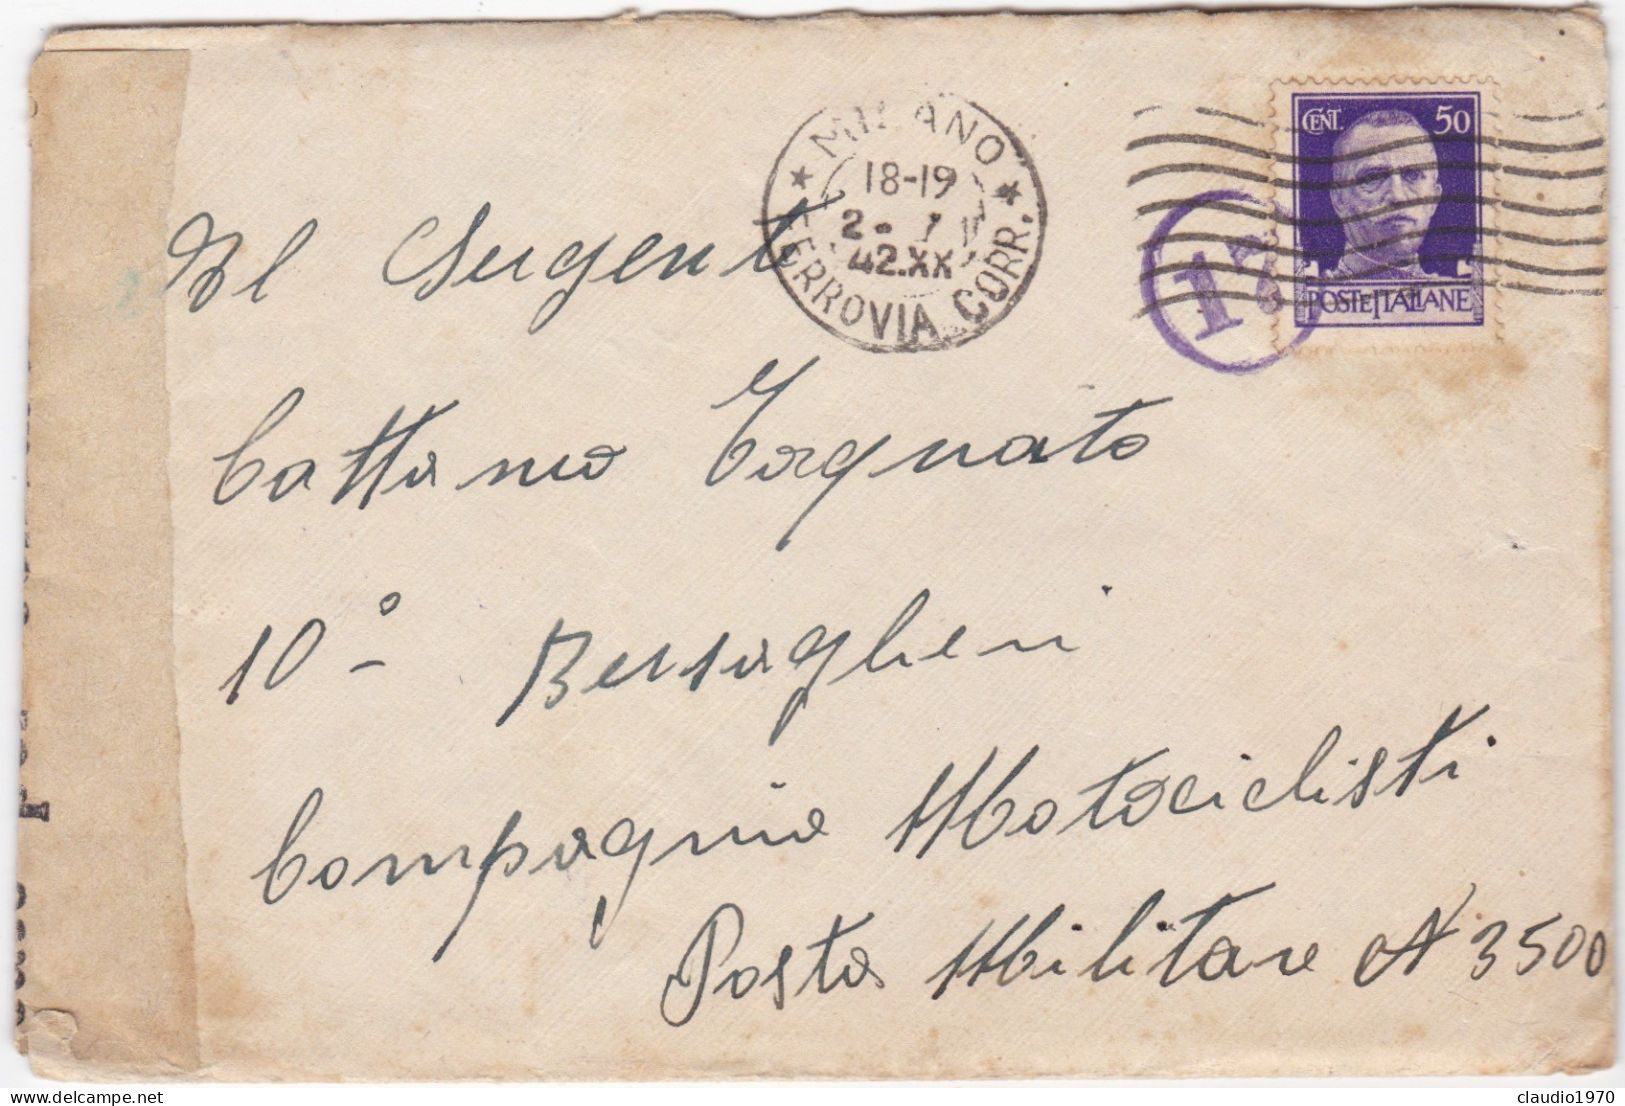 MILANO
18-19
2- I
42.XX
FERROVIA CORR.
CENT. 50
POSTE ITALIANE
Al Sergent
Cattaneo Torquato
10° Bersaglieri
Compagnia Motociclisti
Posta Militare N 3500
claudio1970